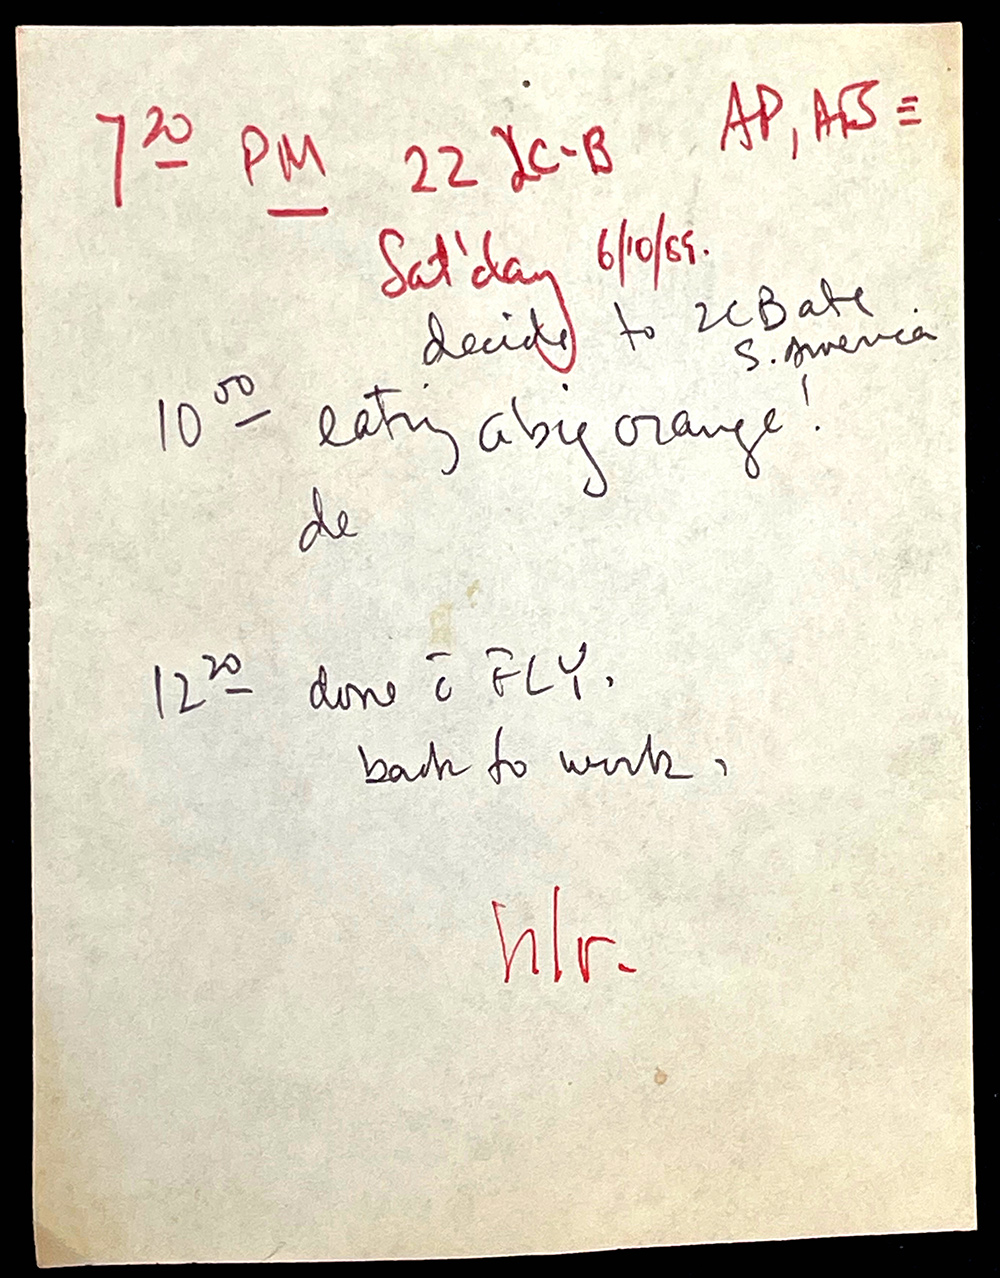 7 20 PM 22 2C-B AP, ATS ≡
Sat'day 6/10/89.
decide to 2CBate
S. America
10 00 eating a big orange!
de
12 20 done c̄ FLY.
back to work.
n/r.